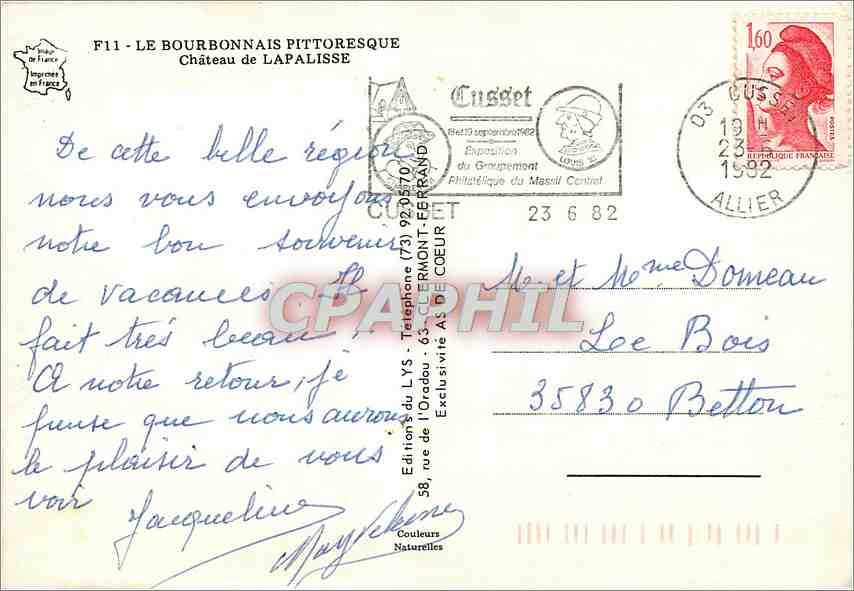 Image
de France
Imprimée
en France
F11 - LE BOURBONNAIS PITTORESQUE
Château de LAPALISSE
1,60
POSTES
REPUBLIQUE FRANÇAISE
Cusset
18 et 19 septembre 1982
Exposition
du Groupement
Philatélique du Massif Central
LOUIS XI
CUSSET 23 6 82
03 CUSSET
19 H
23 - 6
1982
ALLIER
De cette belle région
nous vous envoyons
notre bon souvenir
de vacances. Il
fait très beau.
A notre retour, je
pense que nous aurons
le plaisir de vous
voir
Jacqueline
Editions du LYS - Téléphone (73) 92.05.70
58, rue de l'Oradou - 63 - CLERMONT-FERRAND
Exclusivité AS DE COEUR
Couleurs
Naturelles
M. et Mme Domeau
Le Bois
35830 Betton
CPAPHIL